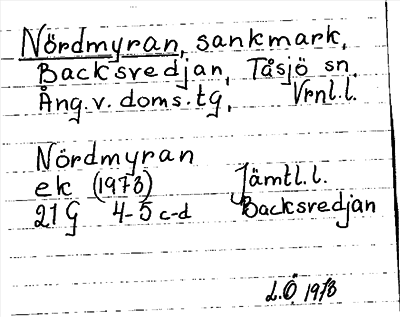 Nördmyran, sankmark,
Backsvedjan, Tåsjö sn.
Ång.v. doms.tg, Vrnl.l.
Nördmyran
ek (1973) Jämtl.l.
21 G 4-5 c-d Backsvedjan
L.Ö 1973